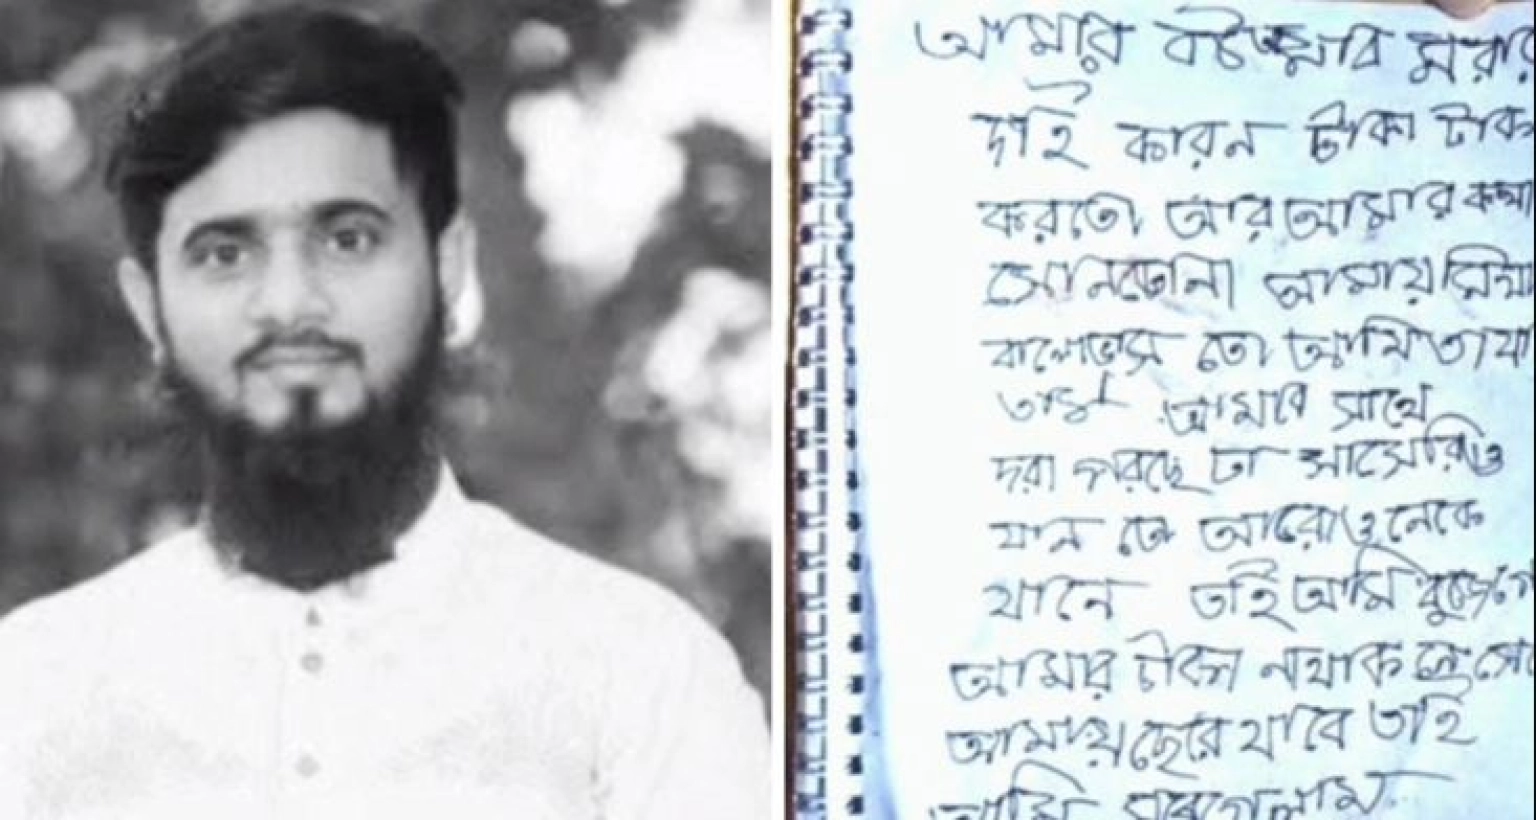 আমার বউ আমার মরার
দাই কারন টাকা টাকা
করতো আর আমার কথা
সোনতোনা আমায়
বালোভাস তো আমি তাযা
আমার সাথে
দরা পরছে তা সাসেরিও
যান তো আরো ওনেকে
যানে তাই আমি বুজে গে
আমার টাকা নথাক লে সে
আমায় ছেরে যাবে তাই
আমি মরে গেলাম